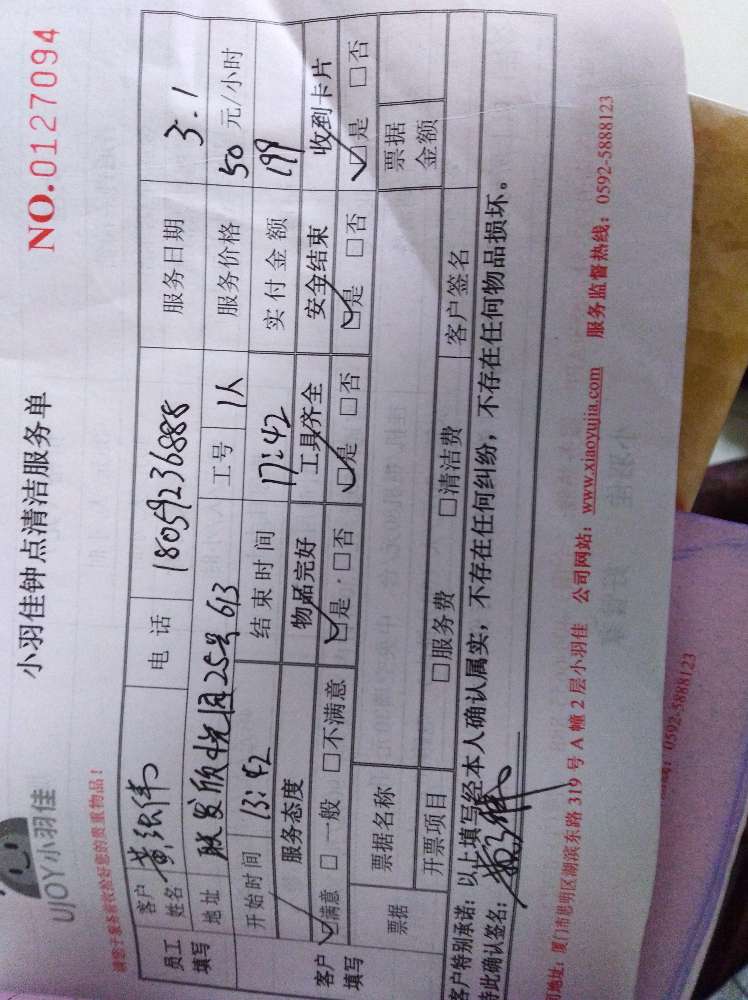 小羽佳钟点清洁服务单
UJOY小羽佳
NO.0127094
请您于服务前收拾好您的贵重物品!
员工填写 客户姓名 电话 18059236888 服务日期 3.1
地址 欣园25号613 工号 1人 服务价格 50 元/小时
开始时间 13:42 结束时间 17:42 实付金额 199
客户填写 服务态度 物品完好 工具齐全 安全结束 收到卡片
☑满意 □一般 □不满意 ☑是 □否 ☑是 □否 ☑是 □否 ☑是 □否
票据 票据名称 票据金额
开票项目 □服务费 □清洁费 客户签名
客户特别承诺:以上填写经本人确认属实,不存在任何纠纷,不存在任何物品损坏。
特此确认签名:
司地址:厦门市思明区湖滨东路 319 号 A 幢 2 层小羽佳 公司网站:www.xiaoyujia.com 服务监督热线:0592-5888123
线:0592-5888123